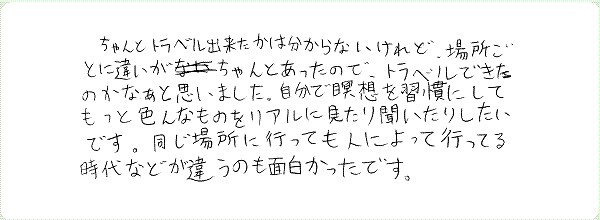 ちゃんとトラベル出来たかは分からないけれど、場所ご
とに違いがちゃんとあったので、トラベルできた
のかなぁと思いました。自分で瞑想を習慣にして
もっと色んなものをリアルに見たり聞いたりしたい
です。同じ場所に行っても人によって行ってる
時代などが違うのも面白かったです。